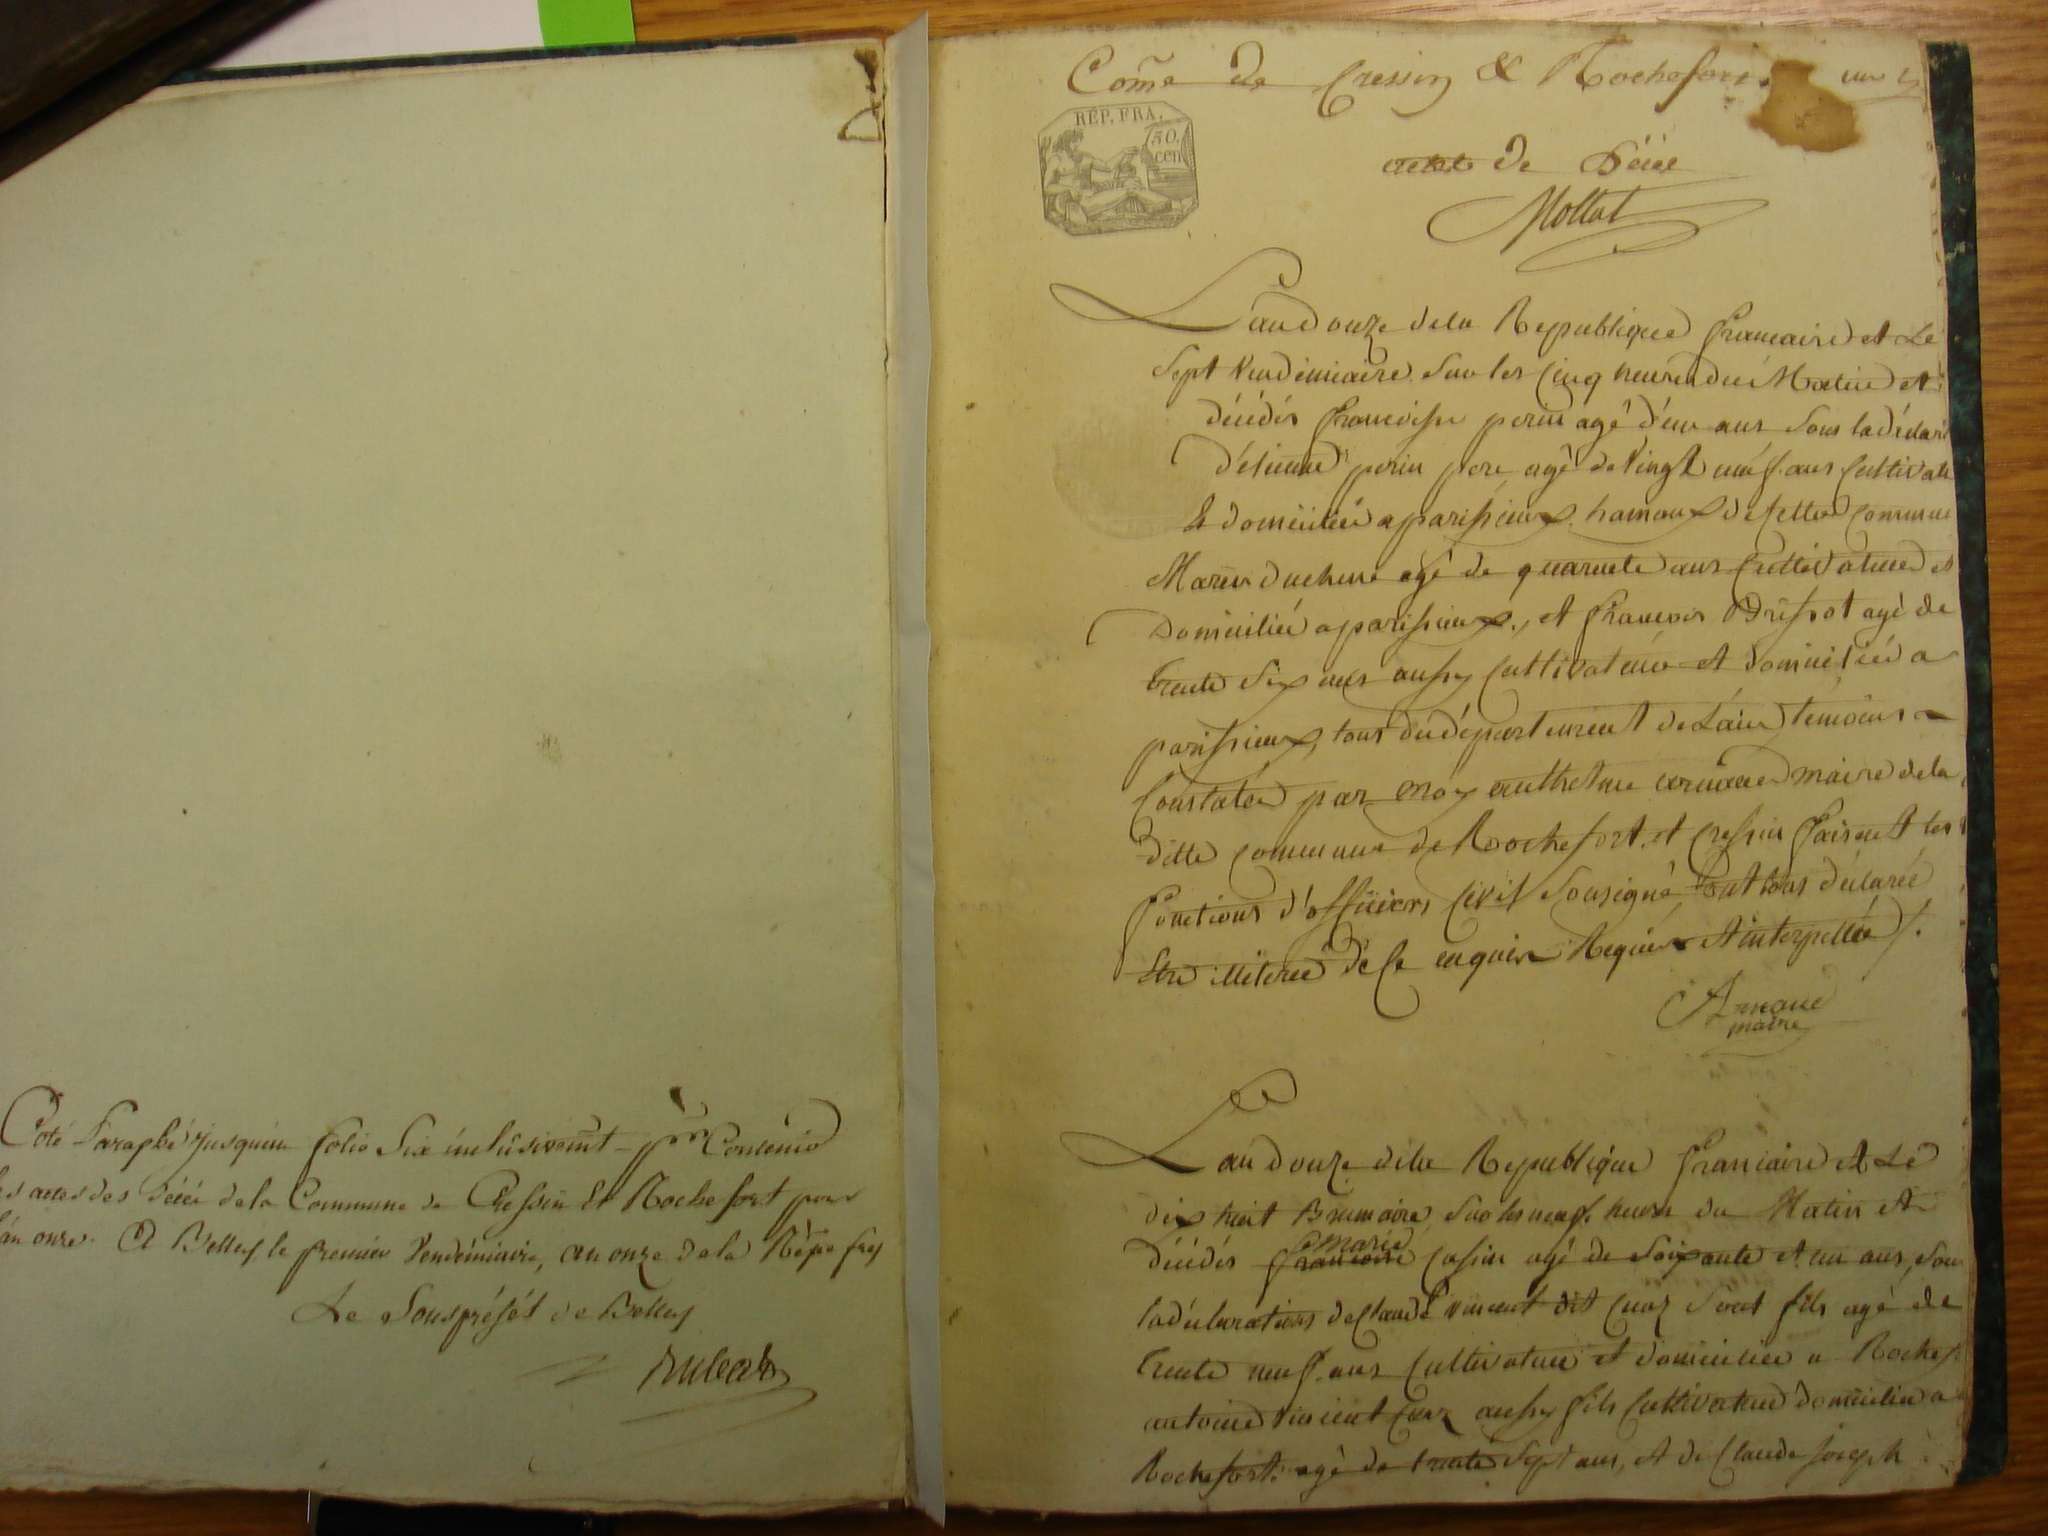 Coté Paraphé jusquau folio Six inclusivemt pour Contenir
les actes des décès de la Commune de Cressin Et Rochefort pour
l'an onze. A Belley le premier Vendémiaire, an onze de la Rèpe frse
Le Sousprèfét de Belley
Come de Cressin & Rochefort un
RÉP. FRA.
50.
cen
acte de Décè
Mollat
L'an douze dela Republique francaise et Le
Sept Vendemiaire Sur les Cinq heures du Matin et
décédés francoise perin agé d'un ans Sous la déclar
d'etienne perin pere agé de Vingt neuf ans Cultivat
& domicilié a parissieux hamaux de cette commune
Marin duchene agé de quarante ans Cultivateur et
Domicilié a parissieux, et francois Brissot agé de
trente Six ans aussy Cultivateur et domicilié a
parissieux, tous du département de L'ain témoins
Constatée par moy anthelme arnaud maire dela
ditte commune de Rochefort et cressin faisant les
fonctions d'officiers Civil Sousigné, tous déclaré
Etre illiteré de Ce enquis Requis et interpellée /.
Arnaud
maire
L'an douze dela Republique francaise et Le
dix huit Brumaire, Sur les neuf heures du Matin et
marie
décédés francoise cassin agé de Soixante et un ans, Sous
la déclarations de Claude vincent dit cuaz Sont fils agé de
trente neuf ans Cultivateur et domicilié a Rochef
antoine vincent cuaz aussy fils Cultivateur domicilié a
Rochefort agé de trente Sept ans, et de Claude joseph